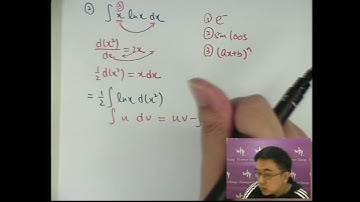 ② ∫ x ln x dx
③
d(x²)/dx = 2x
½ d(x²) = x dx
= ½ ∫ ln x d(x²)
∫ u dv = uv - ∫
① e
② sin / cos
③ (ax+b)ⁿ